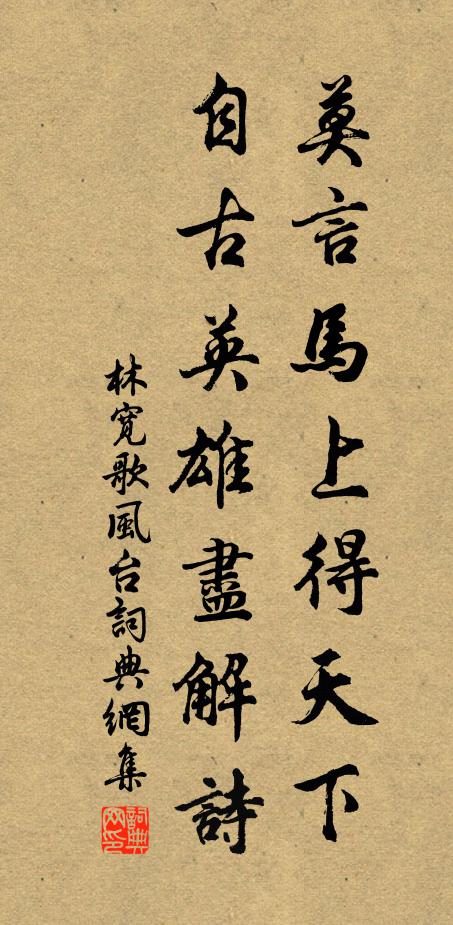 莫言馬上得天下
自古英雄盡解詩
林寬歌風台詞典網集
詞典网印